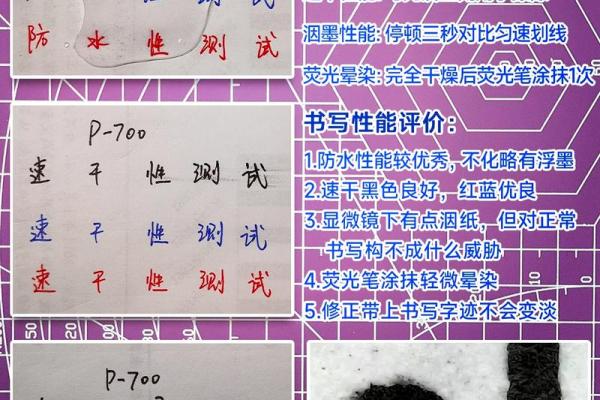 防水性测试
P-700
速干性测试
速干性测试
速干性测试
P-700
洇墨性能: 停顿三秒对比匀速划线
荧光晕染: 完全干燥后荧光笔涂抹1次
书写性能评价：
1.防水性能较优秀，不化略有浮墨
2.速干黑色良好，红蓝优良
3.显微镜下有点洇纸，但对正常
书写构不成什么威胁
4.荧光笔涂抹轻微晕染
5.修正带上书写字迹不会变淡
10
50